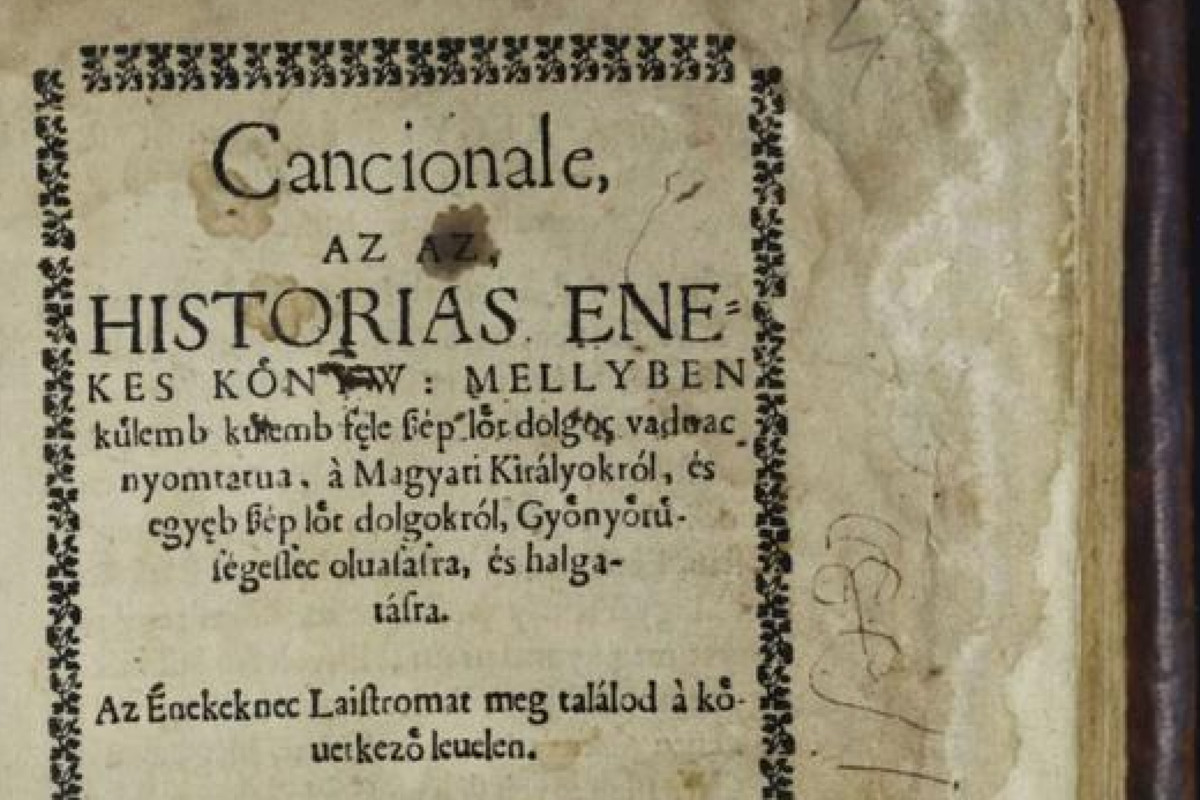 Cancionale,
AZ AZ,
HISTORIAS ENE=
KES KOͤNYW: MELLYBEN
kuͤlemb kuͤlemb fęle ſzép loͤt dolgoc vadnac
nyomtatua, à Magyari Királyokról, és
egyęb ſzép loͤt dolgokról, Gyoͤnyoͤruͤ-
ſégeſſec oluaſaſra, és halga-
táſra.
Az Énekeknec Laiſtromat meg találod à koͤ-
uetkezoͤ leuelen.